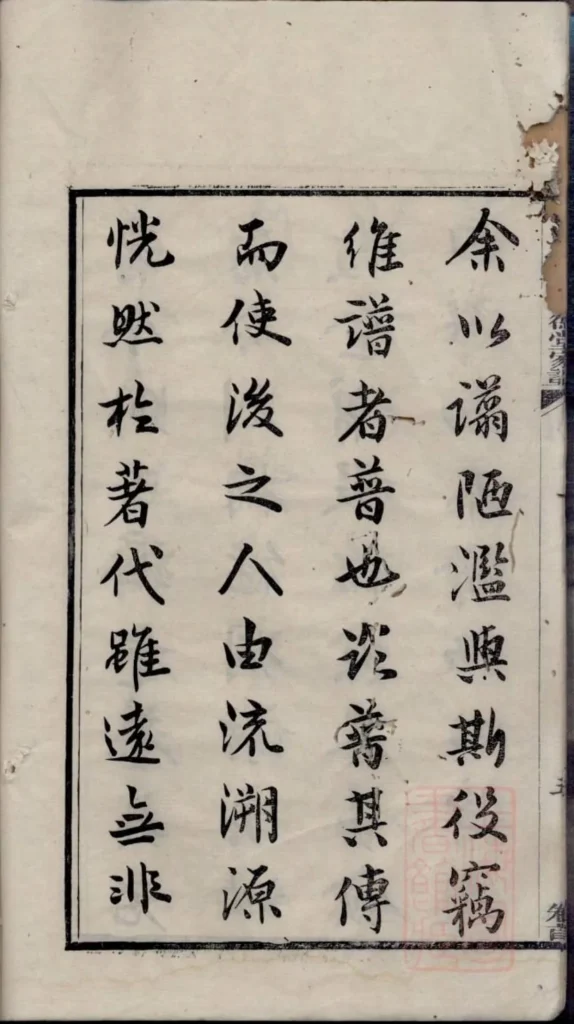 余以謭陋濫與斯役竊
維譜者普也普其傳
而使後之人由流溯源
恍然於著代雖遠無非
堂家譜
卷首